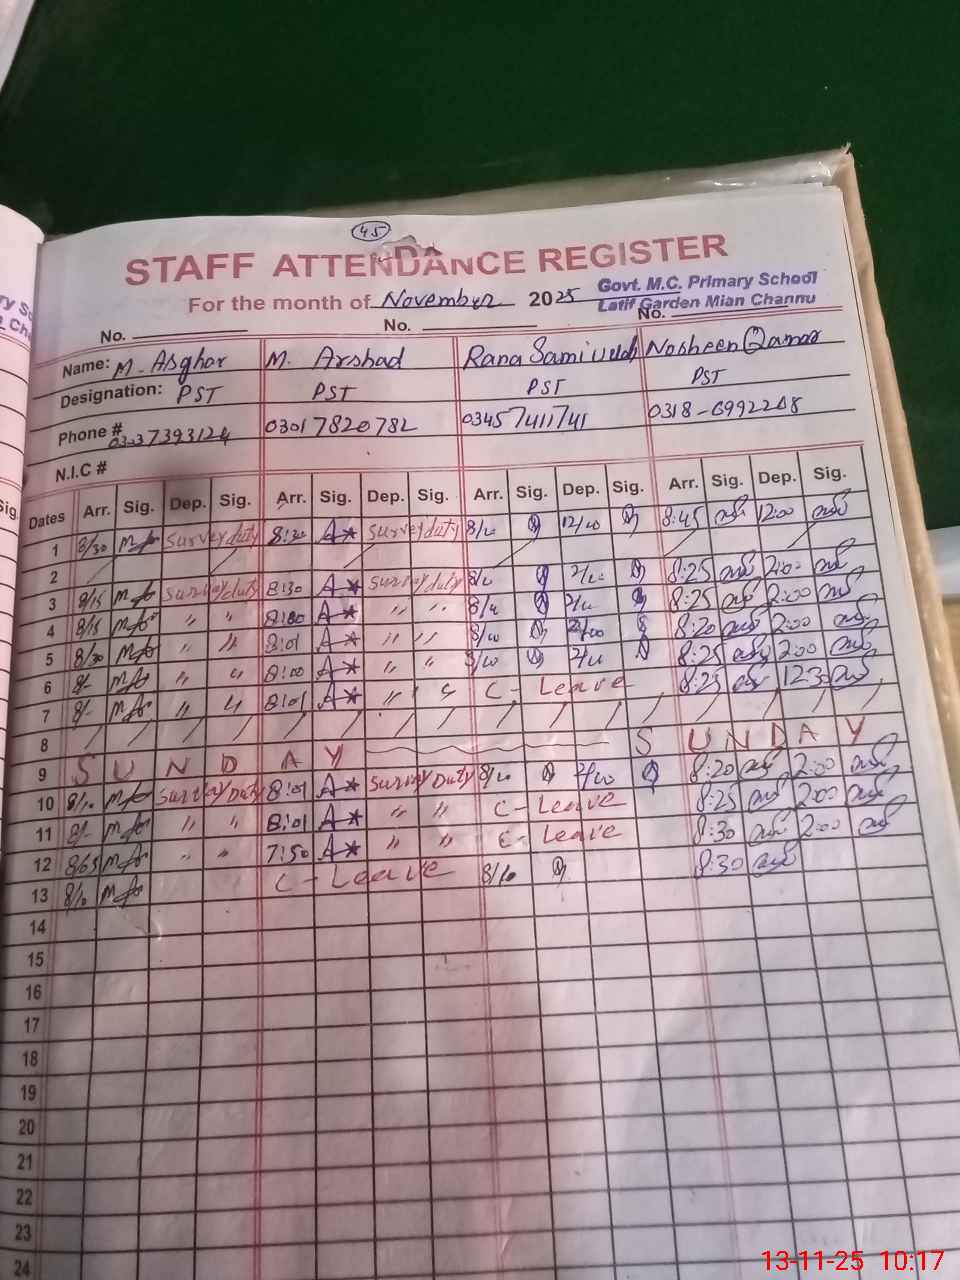 45
STAFF ATTENDANCE REGISTER
For the month of November 2025 Govt. M.C. Primary School
Latif Garden Mian Channu
No. No. No.
Name: M. Asghar M. Arshad Rana Sami Nosheen Qamar
Designation: PST PST PST PST
Phone # 03017820782 03457411741 0318-6992248
N.I.C #
Dates Arr. Sig. Dep. Sig. Arr. Sig. Dep. Sig. Arr. Sig. Dep. Sig. Arr. Sig. Dep. Sig.
1 8/30 Survey duty 8:30 A* Survey duty 8/10 12/10 8:45 12:00
2
3 8/15 Survey duty 8:30 A* Survey duty 8/10 2/10 8:25 2:00
4 8/15 " " 8:00 A* " " 8/10 2/10 8:25 2:00
5 8/30 " " 8:01 A* " " 8/10 2/00 8:20 2:00
6 8/- " " 8:00 A* " " 8/10 2/10 8:25 2:00
7 8/- " " 8:01 A* " " C-Leave 8:25 12:30
8
9 S U N D A Y S U N D A Y
10 8/10 Survey Duty 8:01 A* Survey Duty 8/10 2/10 8:20 2:00
11 8/- " " 8:01 A* " " C-Leave 8:25 2:00
12 8/05 " " 7:50 A* " " C-Leave 8:30 2:00
13 8/10 C-Leave 8/10 8:30
14
15
16
17
18
19
20
21
22
23
24
13-11-25 10:17